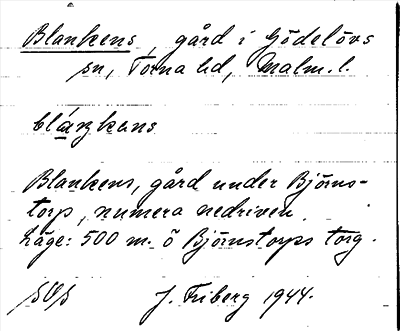 Blankens, gård i Gödelövs
sn, Torna hd, Malm. l.
bláŋkans
Blankens, gård under Björns-
torp, numera nedriven.
Läge: 500 m. ö Björnstorps torg.
J. Friberg 1944.